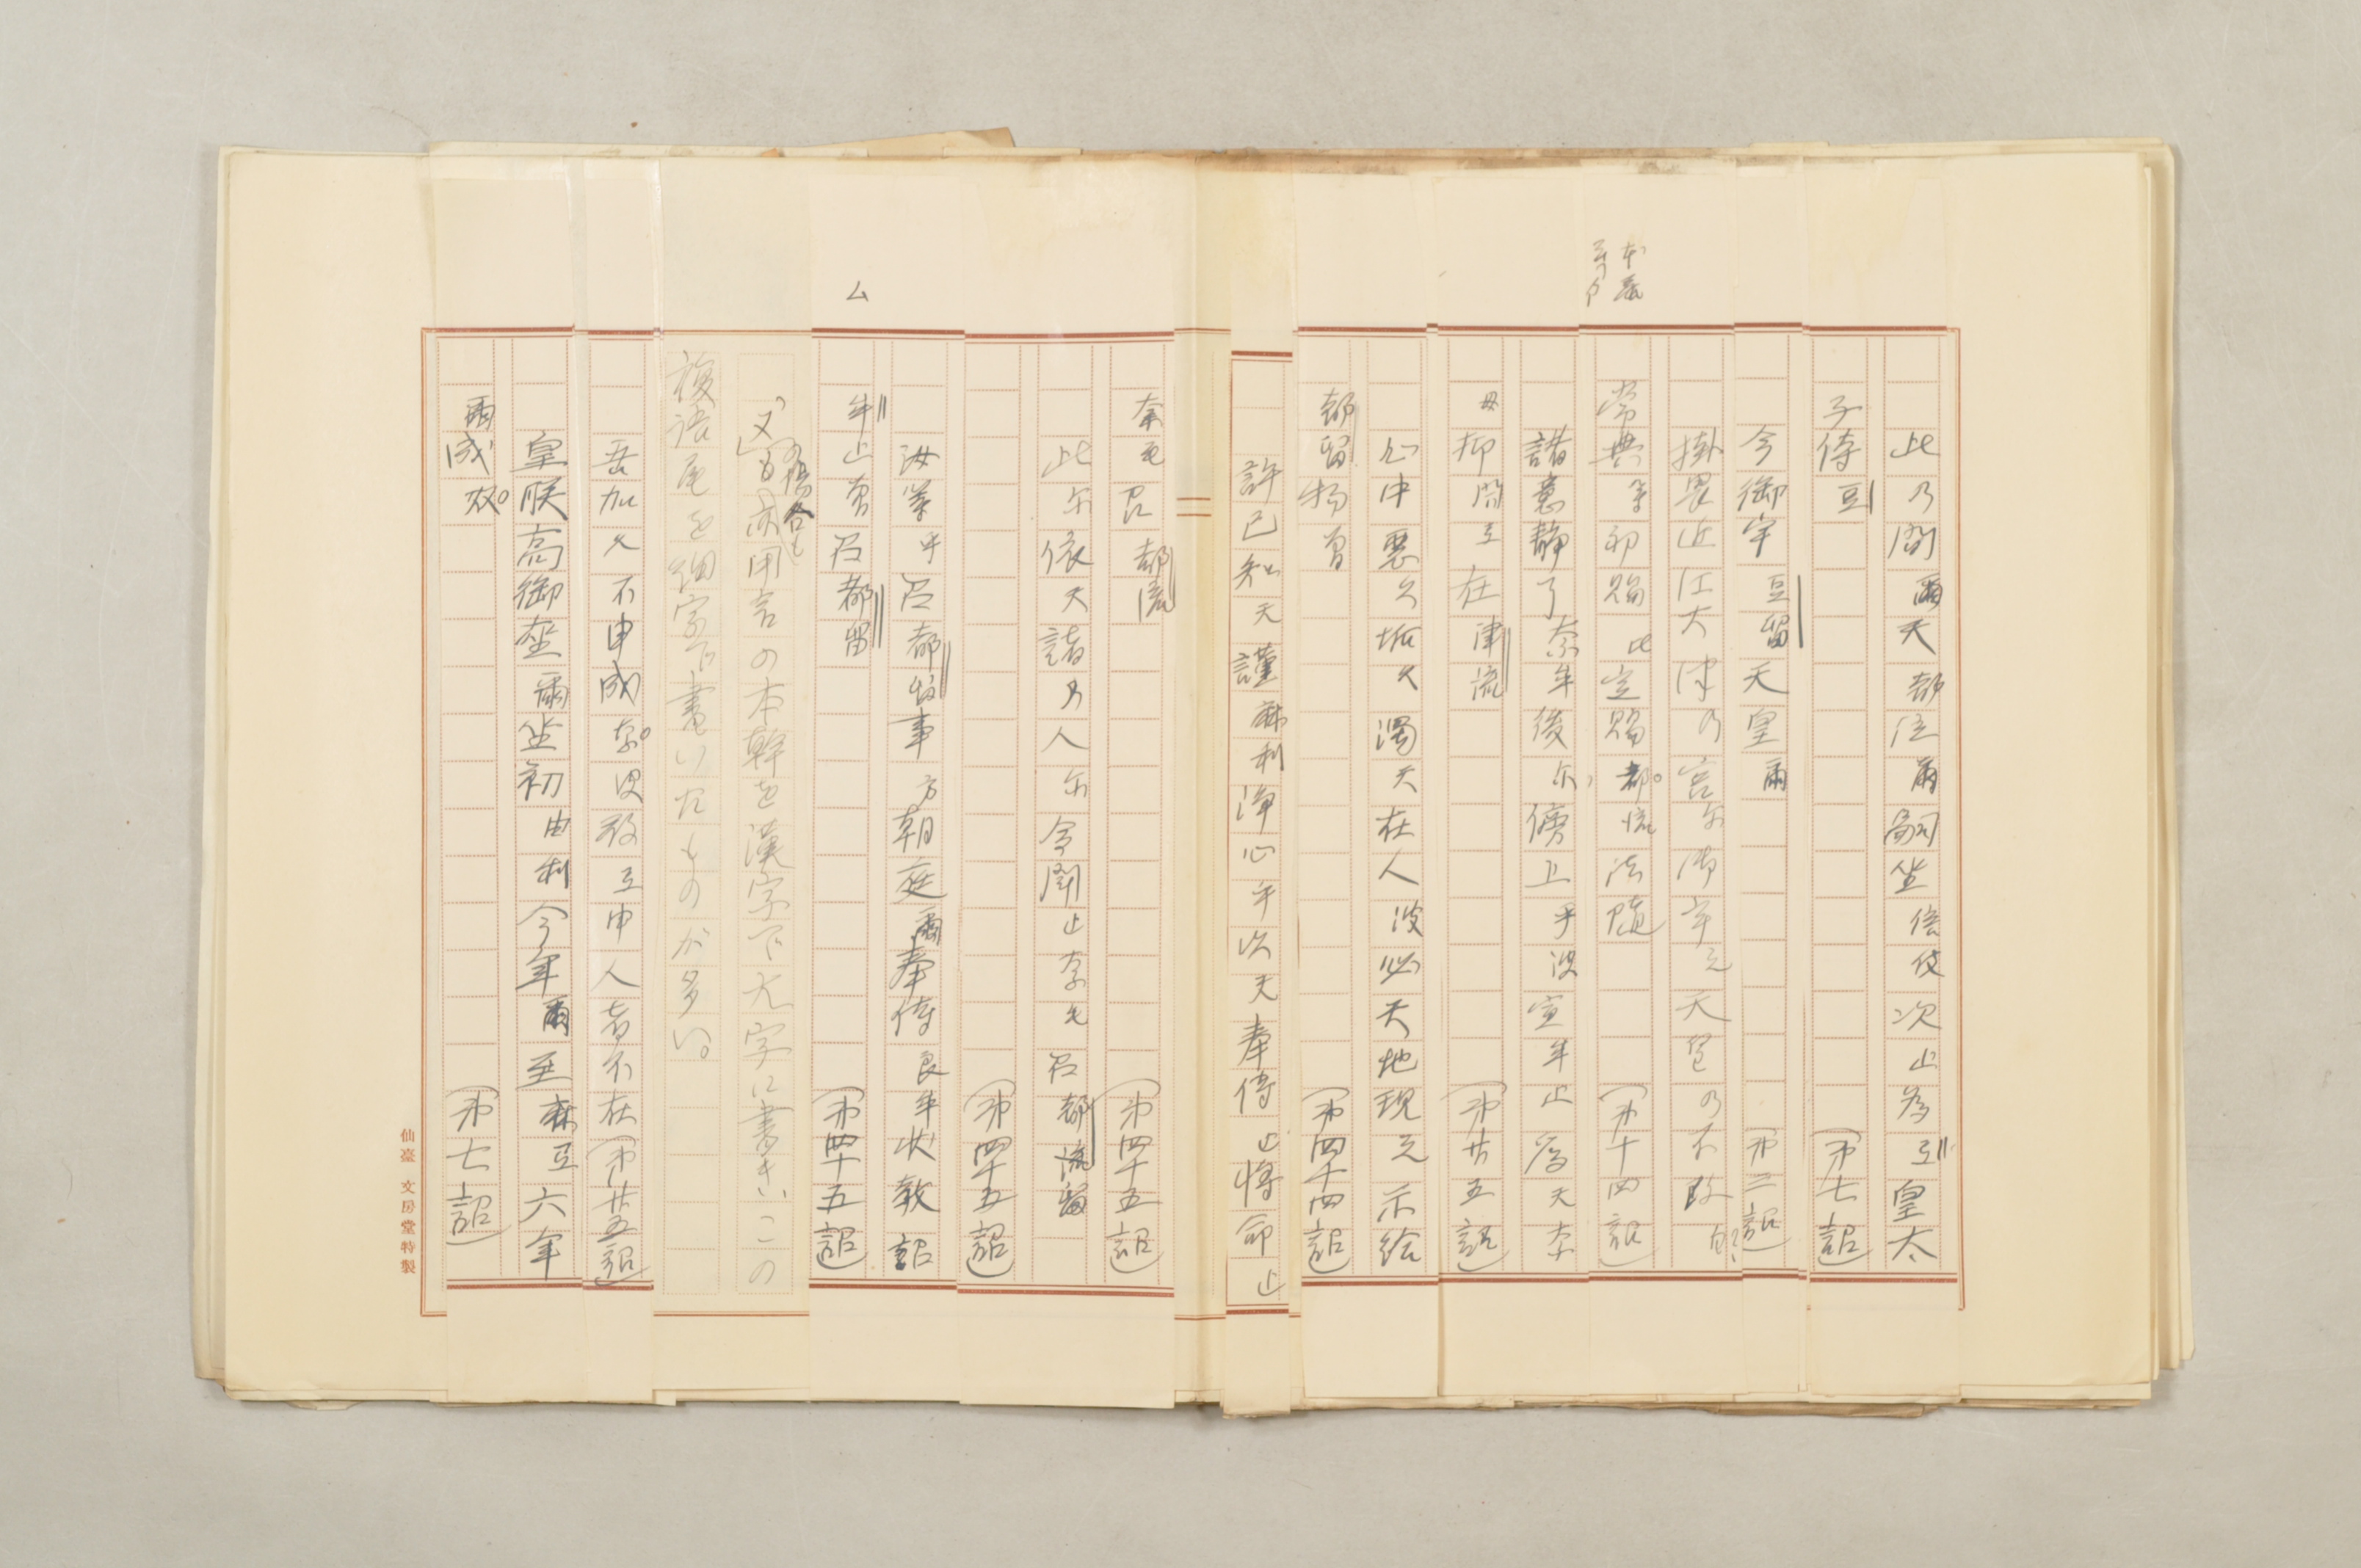 此乃間爾天都位爾嗣坐倍伎次止為弖皇太
子侍豆 (第七詔)
今御宇豆留天皇爾 (第二詔)
掛畏近江大津乃宮尓御宇之天皇乃不改
常典等初賜比定賜都流法随 (第十四詔)
諸意静了奈牟後尓傍上乎波宣牟止為天奈
母抑閇弖在津流 (第廿五詔)
心中悪久垢久濁天在人波必天地現之示給
都留物曽 (第四十四詔)
許己知天謹麻利浄心乎以天奉侍止将命止
奈毛召都流 (第四十五詔)
此尓依天諸乃人尓令聞止奈毛召都流留
(第四十五詔)
汝等乎召都留事方朝庭爾奉侍良牟状教詔
ム
牟止曽召都留 (第四十五詔)
用言の本幹を漢字で大字に書き、この
複語尾を細字で書いたものが多い。
吾加久不申成奈波敢弖申人者不在 (第廿五詔)
皇朕高御座爾坐初由利今年爾至麻豆六年
爾成奴 (第七詔)
仙臺 文房堂特製